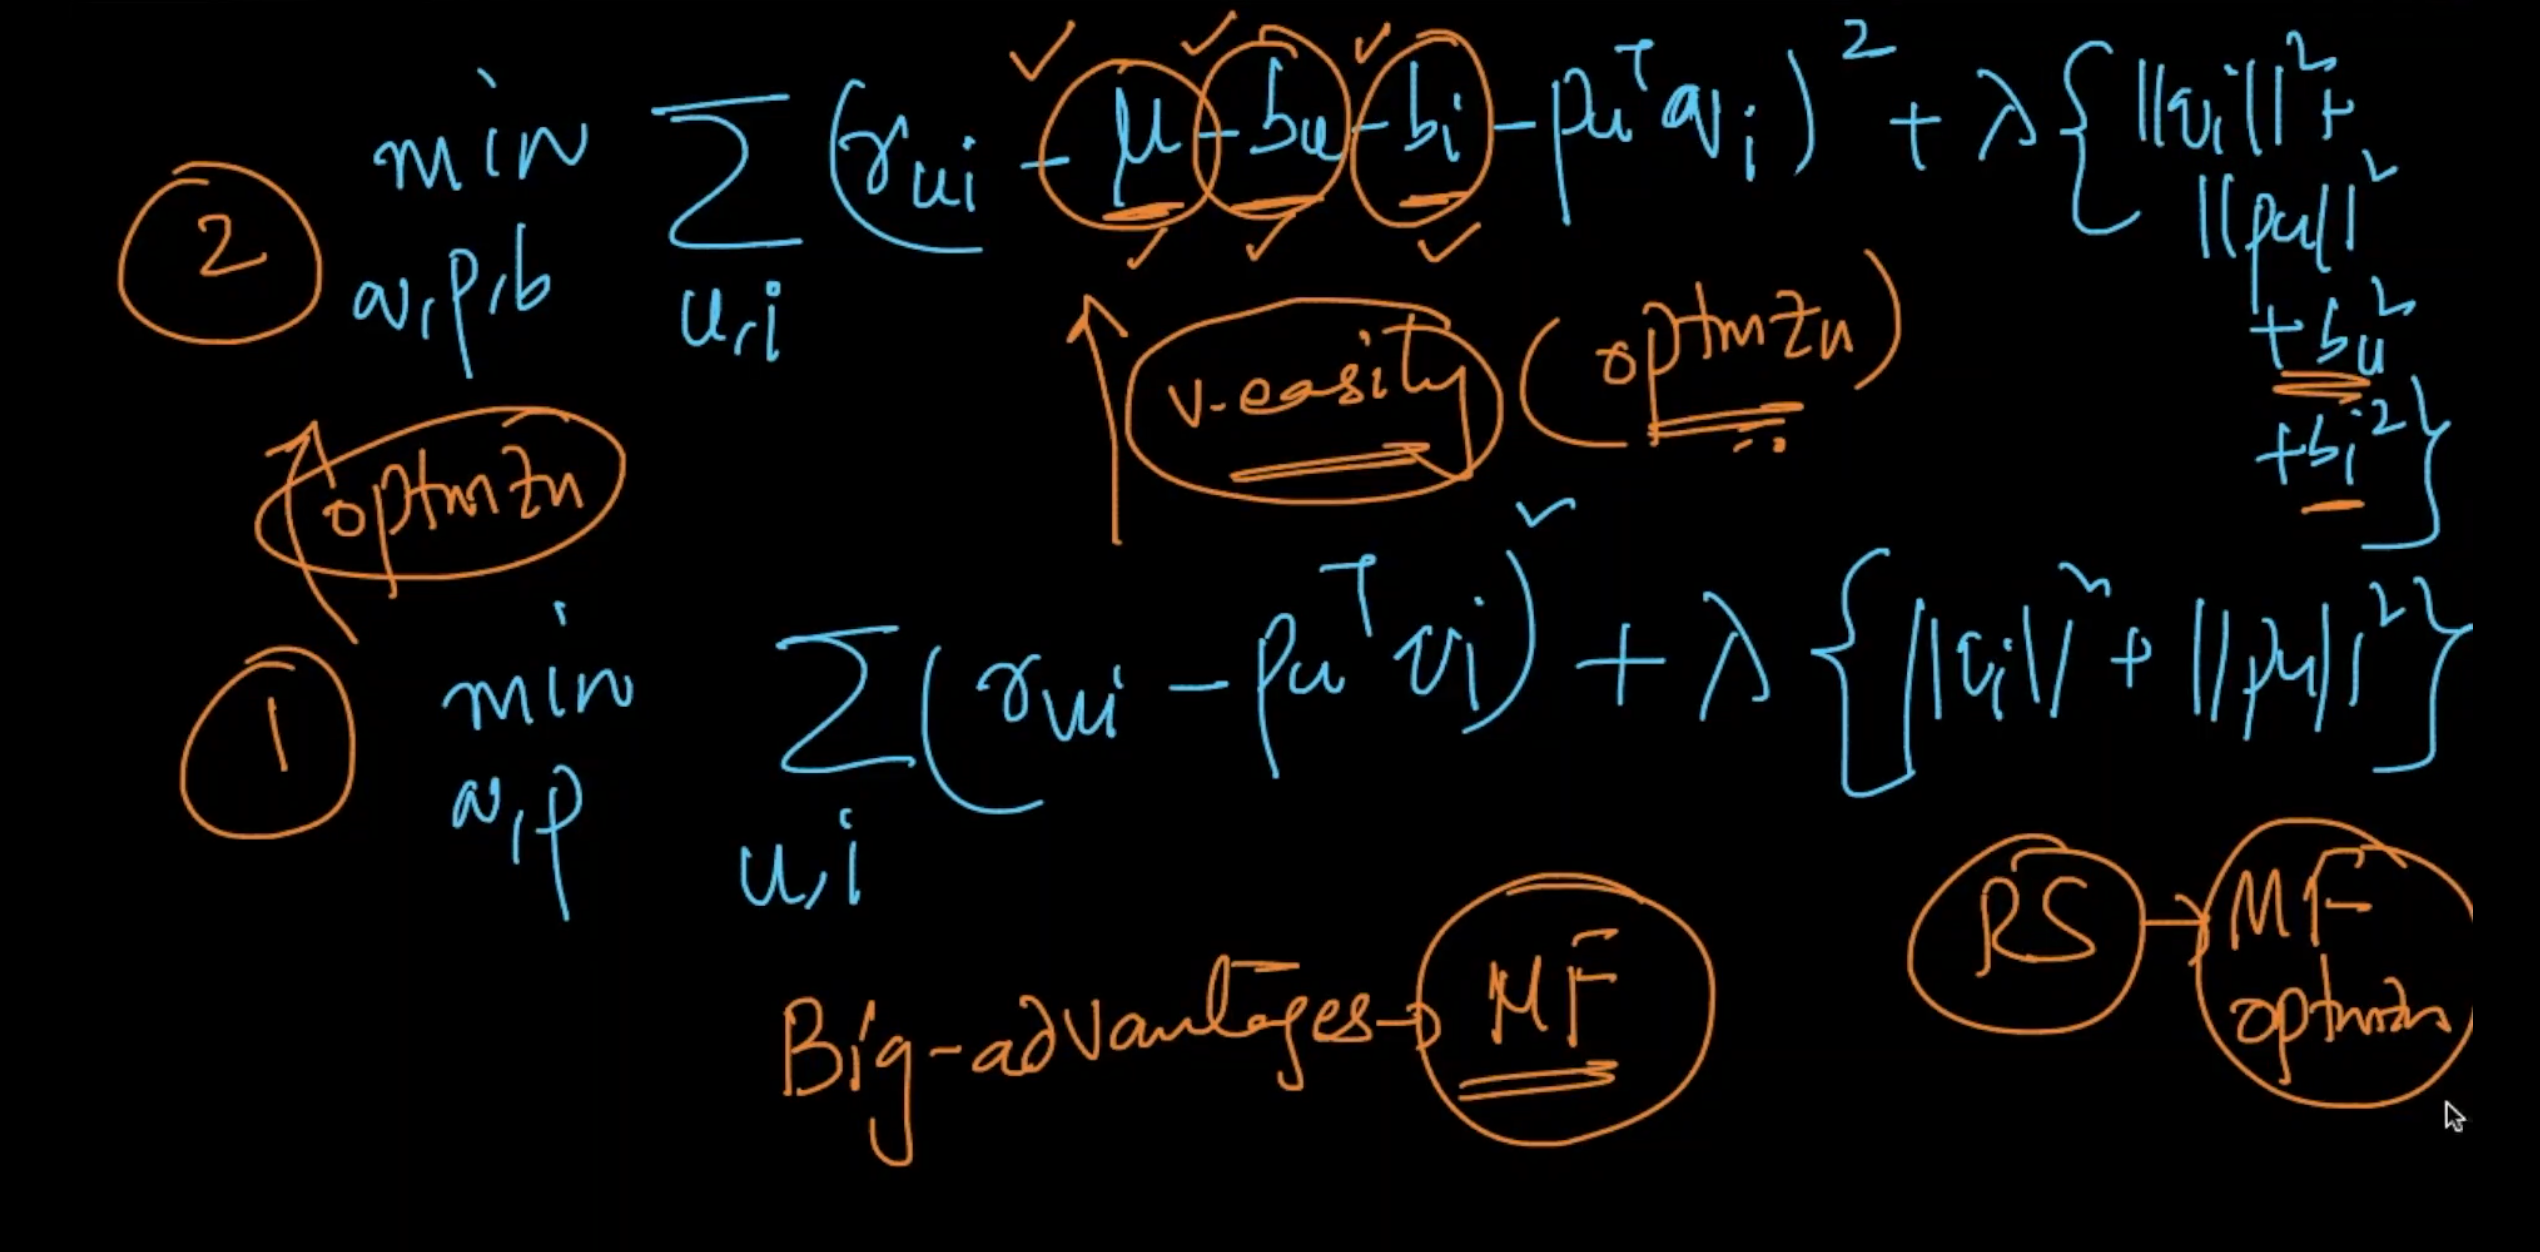 ② min Σ (r_ui - μ - b_u - b_i - p_u^T q_i)² + λ{||q_i||² +
||p_u||²
q, p, b u, i
+ b_u²
+ b_i²}
v-easily (optmzn)
optmzn
① min Σ (r_ui - p_u^T q_i)² + λ{||q_i||² + ||p_u||²}
q, p u, i
Big-advantages → MF
RS → MF
optmzn